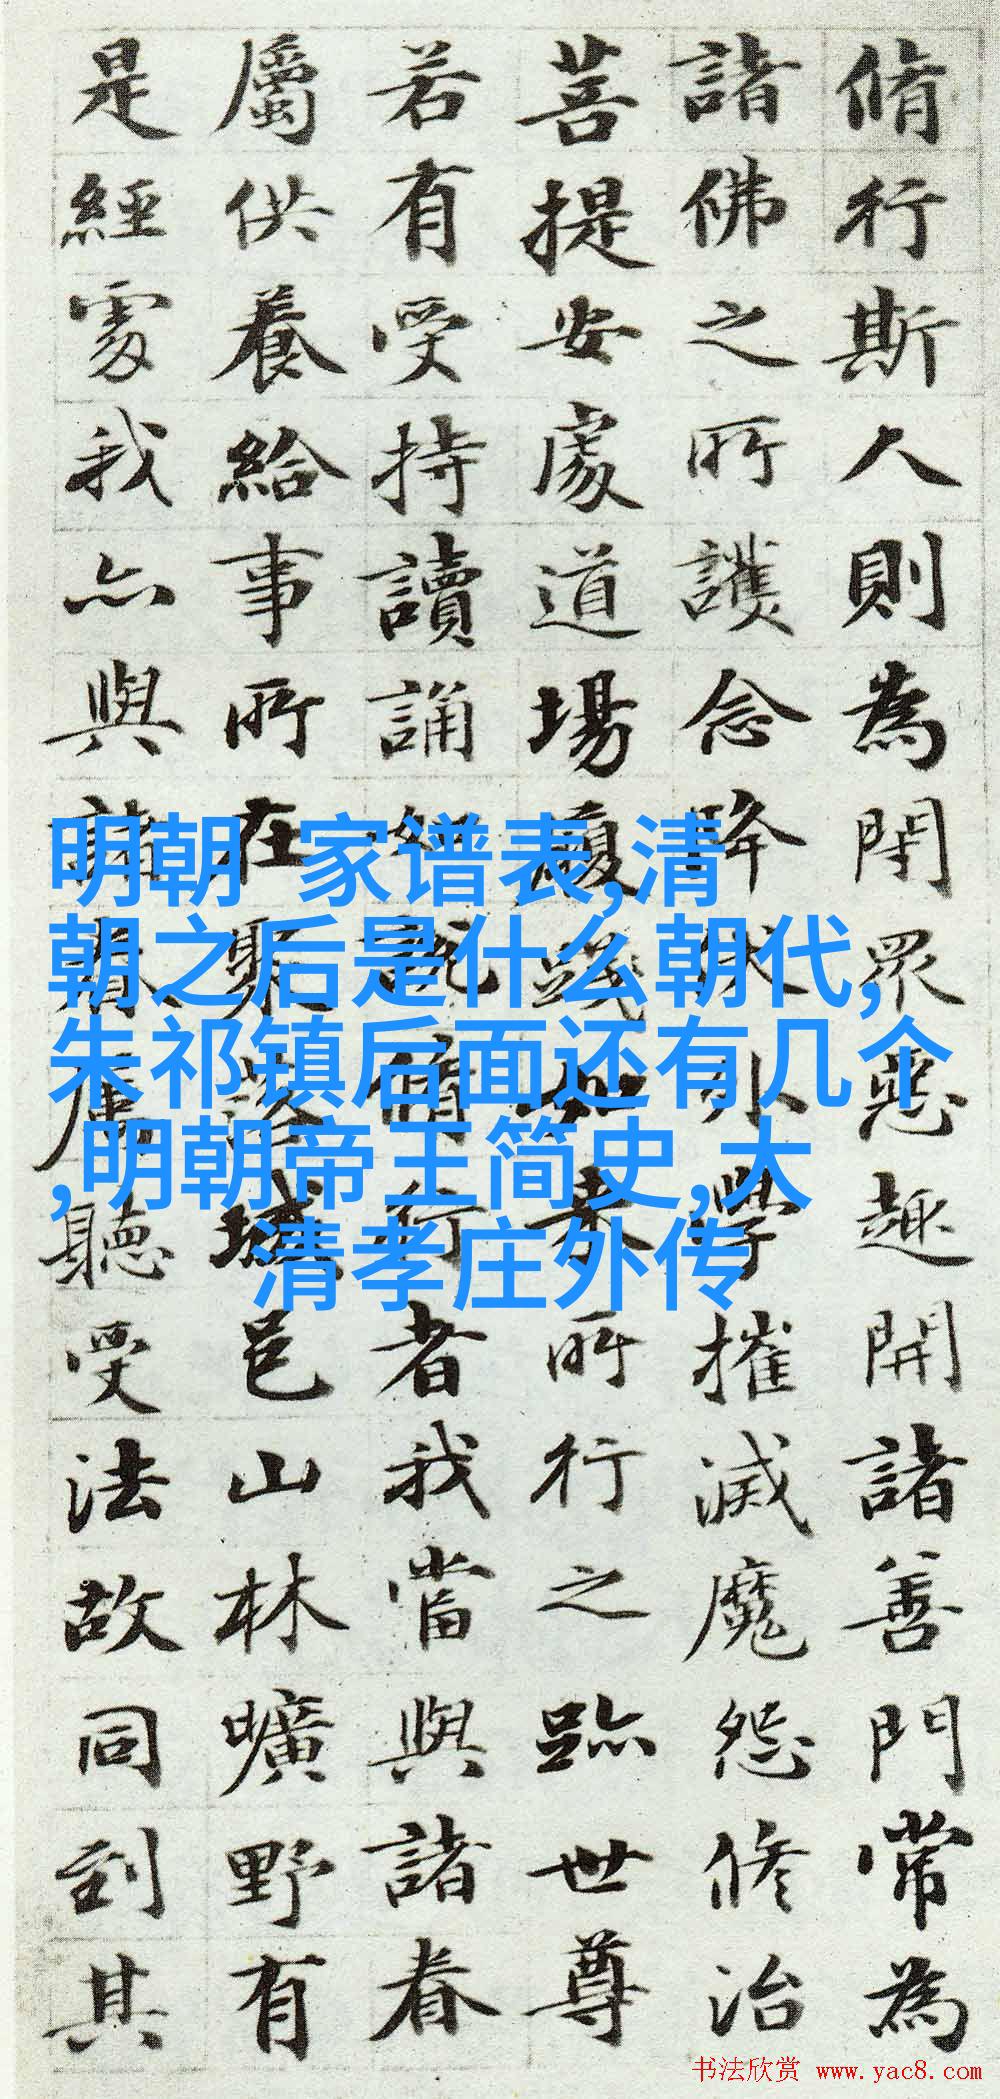 脩行斯人則為閉眾惡趣開諸善門常為
諸佛之所護念降伏外學摧滅魔怨修治
菩提安處道場履踐如來所行之跡世尊
若有受持讀誦說脩行者我當與諸眷
屬供養給事所在聚落城邑山林曠野有
是經處我亦與諸眷屬聽受法故同到其
明朝 家谱表,清
朝之后是什么朝代,
朱祁镇后面还有几个
,明朝帝王简史,大
清孝庄外传
书法欣赏 www.yac8.com